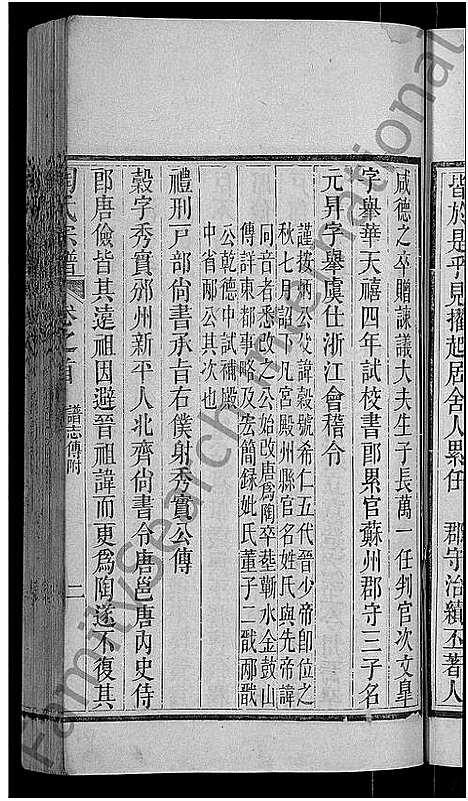 皆於是乎見擢起居舍人累任 郡守治績丕著人
咸德之卒贈諫議大夫生子長萬一任判官次文皇
字舉華天禧四年試校書郎累官蘇州郡守三子名
元昇字舉虞仕浙江會稽令
謹按炳公父諱穀號希仁五代晉少帝卽位之
秋七月詔十凡宮殿州縣官名姓氏與先帝諱
同音者悉改之公始改唐爲陶卒塟蘄水金鼓山
傳詳東都事略及宏簡録妣氏董子二戩邴戬
公乾德中試補殿
中省邴公其次也
禮刑戸部尙書承旨右僕射秀實公傳
穀字秀實邠州新平人北齊尙書令唐邕唐内史侍
郎唐儉皆其遠祖因避晉祖諱而更爲陶遂不復其
陶氏宗譜 卷之首 譜志傳附 二
FamilySearch International